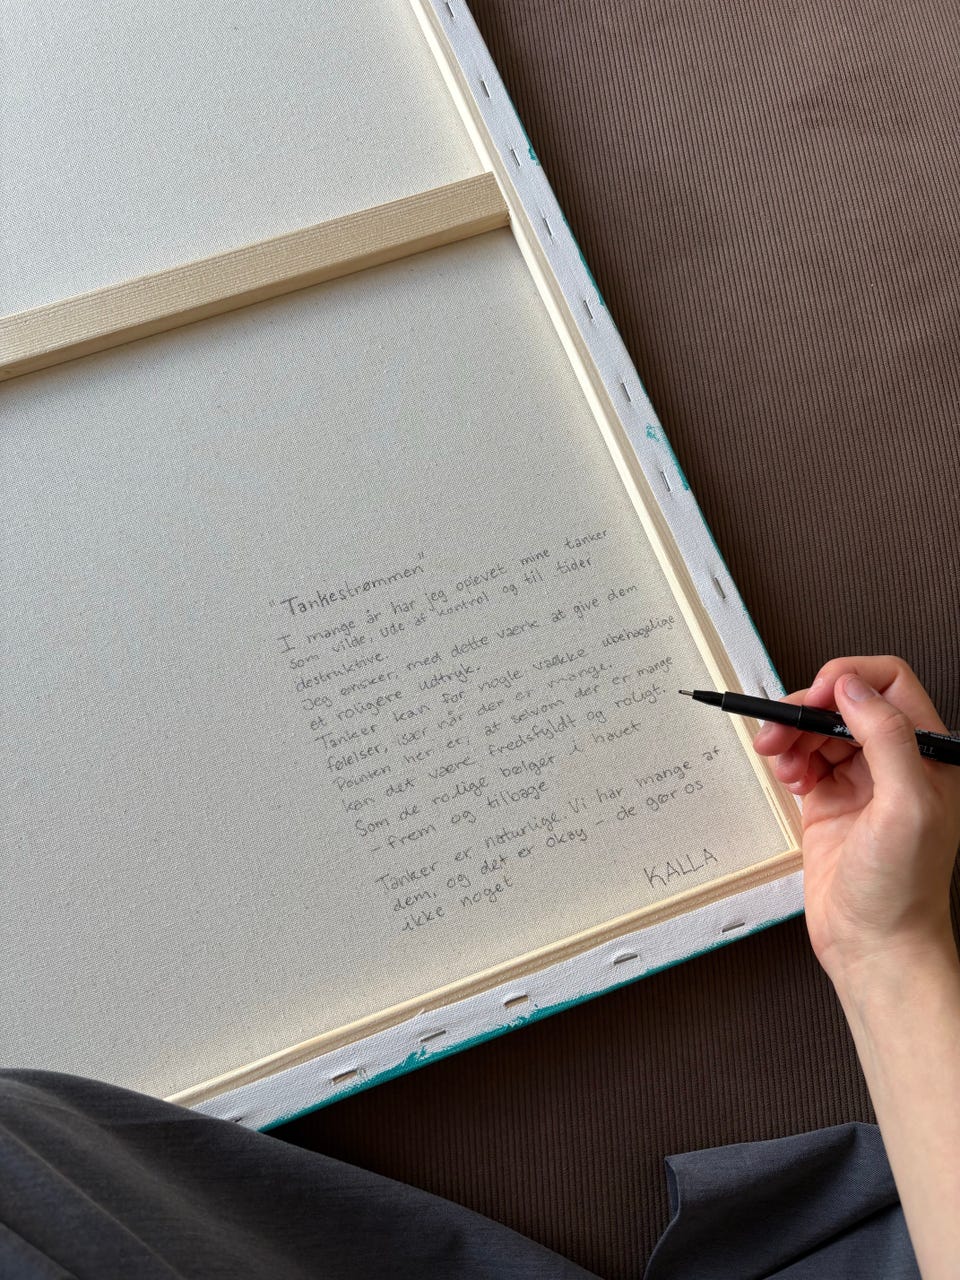 "Tankestrømmen"
I mange år har jeg oplevet mine tanker
som vilde, ude af kontrol og til tider
destruktive.
Jeg ønsker, med dette værk at give dem
et roligere udtryk.
Tanker kan for nogle vække ubehagelige
følelser, især når der er mange.
Pointen her er, at selvom der er mange
kan det være fredsfyldt og roligt.
Som de rolige bølger i havet
- frem og tilbage
Tanker er naturlige. Vi har mange af
dem, og det er okay - de gør os
ikke noget
KALLA